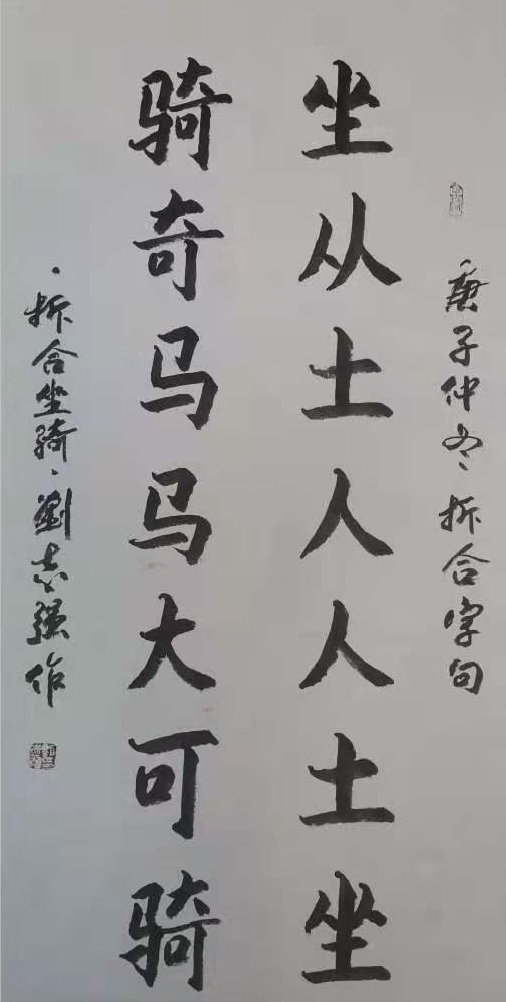 庚子仲冬拆合字句
坐从土人人土坐
骑奇马马大可骑
拆合坐骑劉志强作